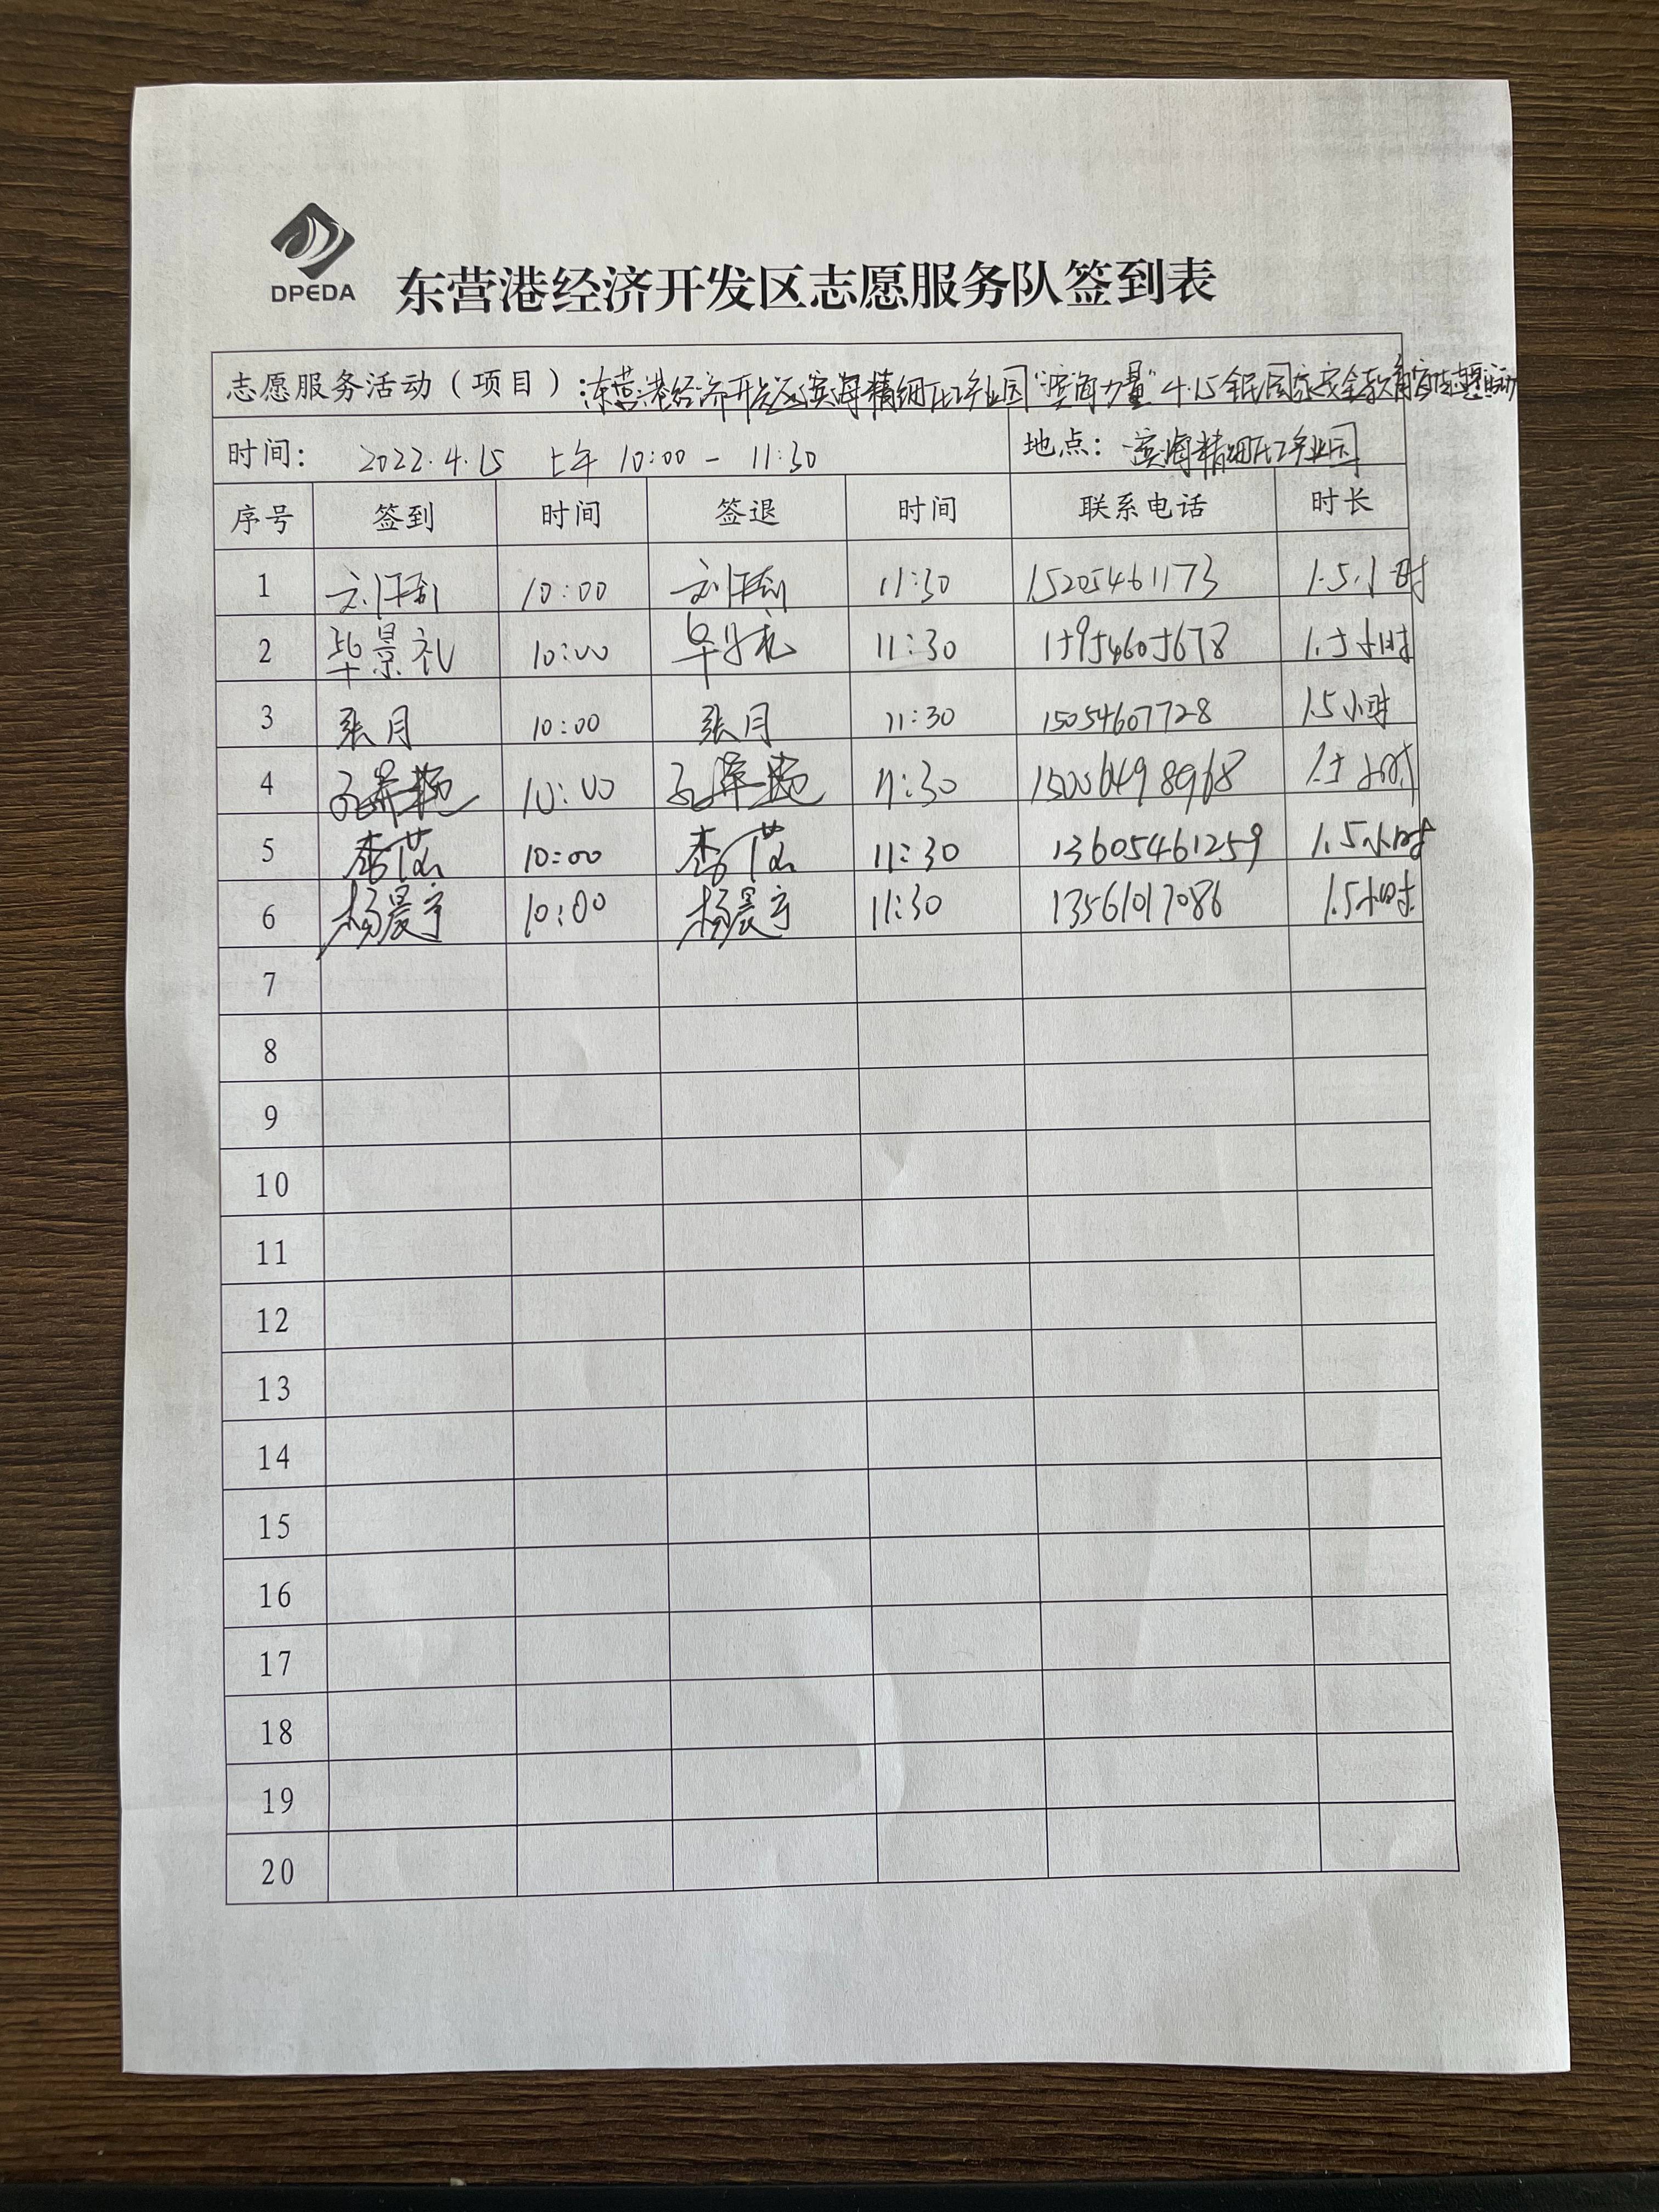 DPEDA
东营港经济开发区志愿服务队签到表
志愿服务活动（项目）：东营港经济开发区滨海精细化工产业园“滨海力量”4.15全民国家安全教育宣传志愿活动
时间： 2022.4.15 上午 10:00 - 11:30 地点：滨海精细化工产业园
序号 签到 时间 签退 时间 联系电话 时长
1 10:00 11:30 15205461173 1.5小时
2 毕景礼 10:00 毕景礼 11:30 15954605678 1.5小时
3 张月 10:00 张月 11:30 15054607728 1.5小时
4 10:00 11:30 15006498968 1.5小时
5 10:00 11:30 13605461259 1.5小时
6 杨晨宇 10:00 杨晨宇 11:30 13561017086 1.5小时
7
8
9
10
11
12
13
14
15
16
17
18
19
20